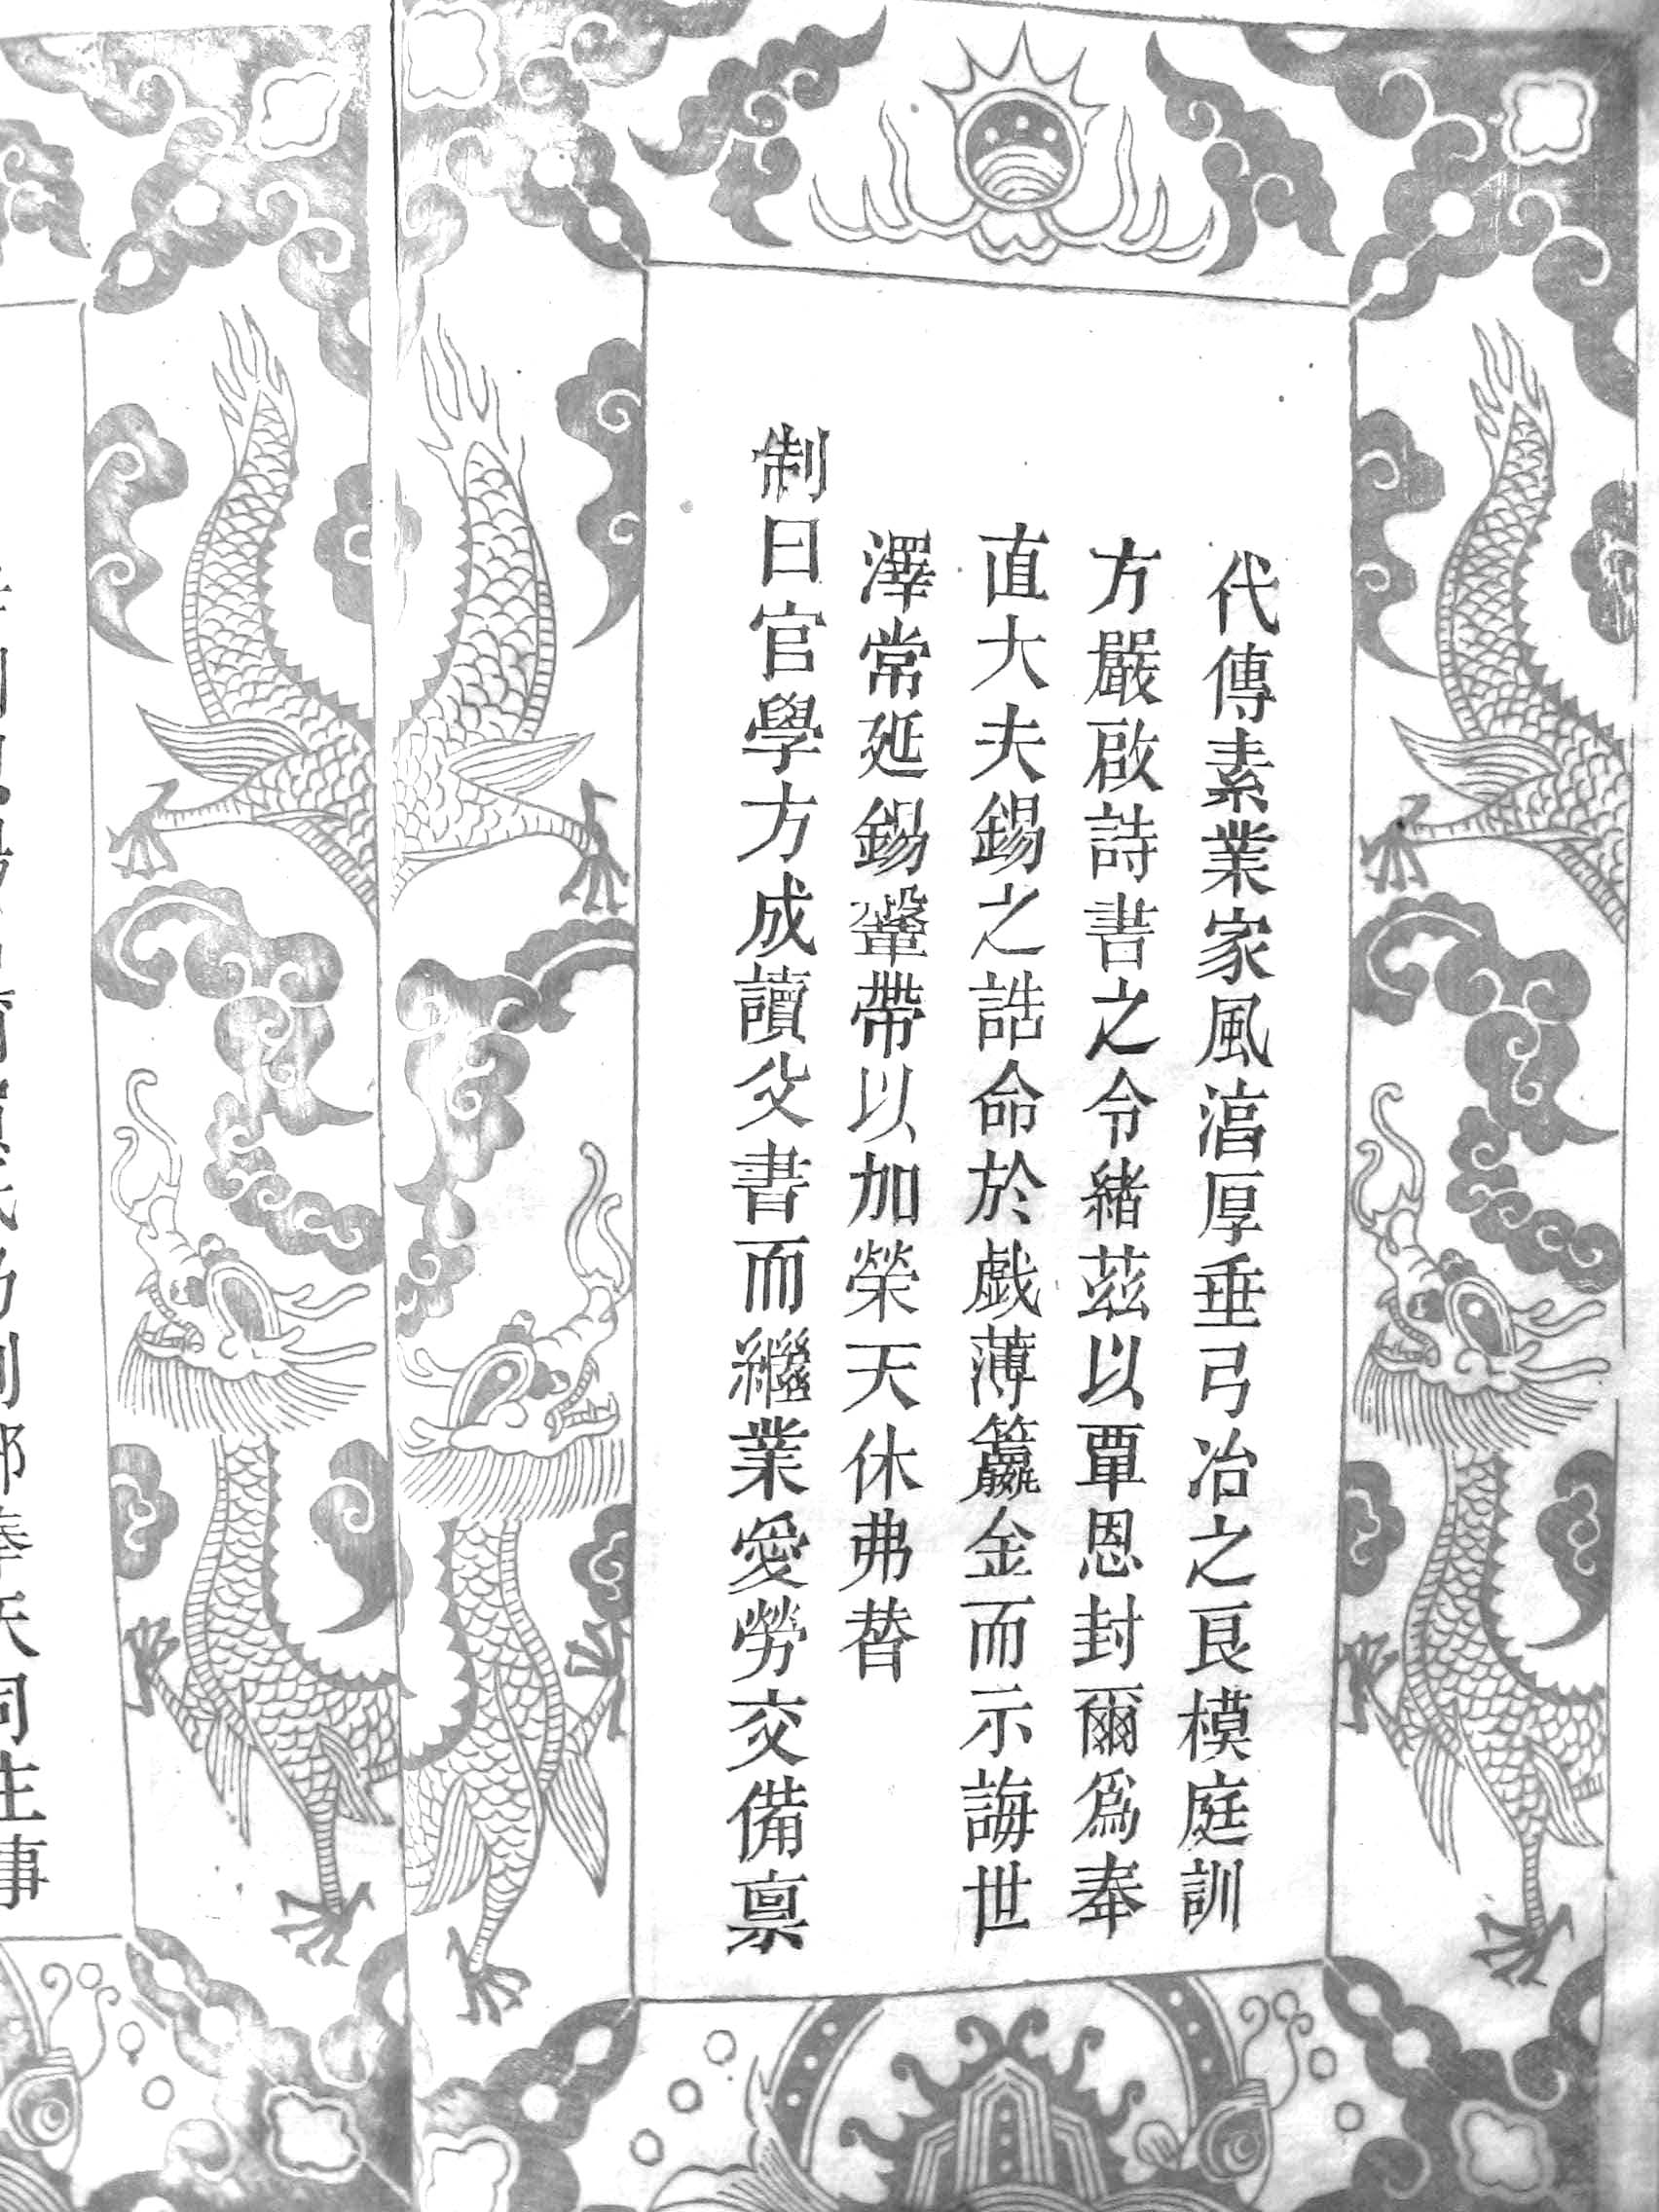 代傳素業家風湻厚垂弓冶之良模庭訓
方嚴啟詩書之令緒茲以覃恩封爾爲奉
直大夫錫之誥命於戲薄籯金而示誨世
澤常延錫鞶帶以加榮天休弗替
制曰官學方成讀父書而繼業愛勞交備禀